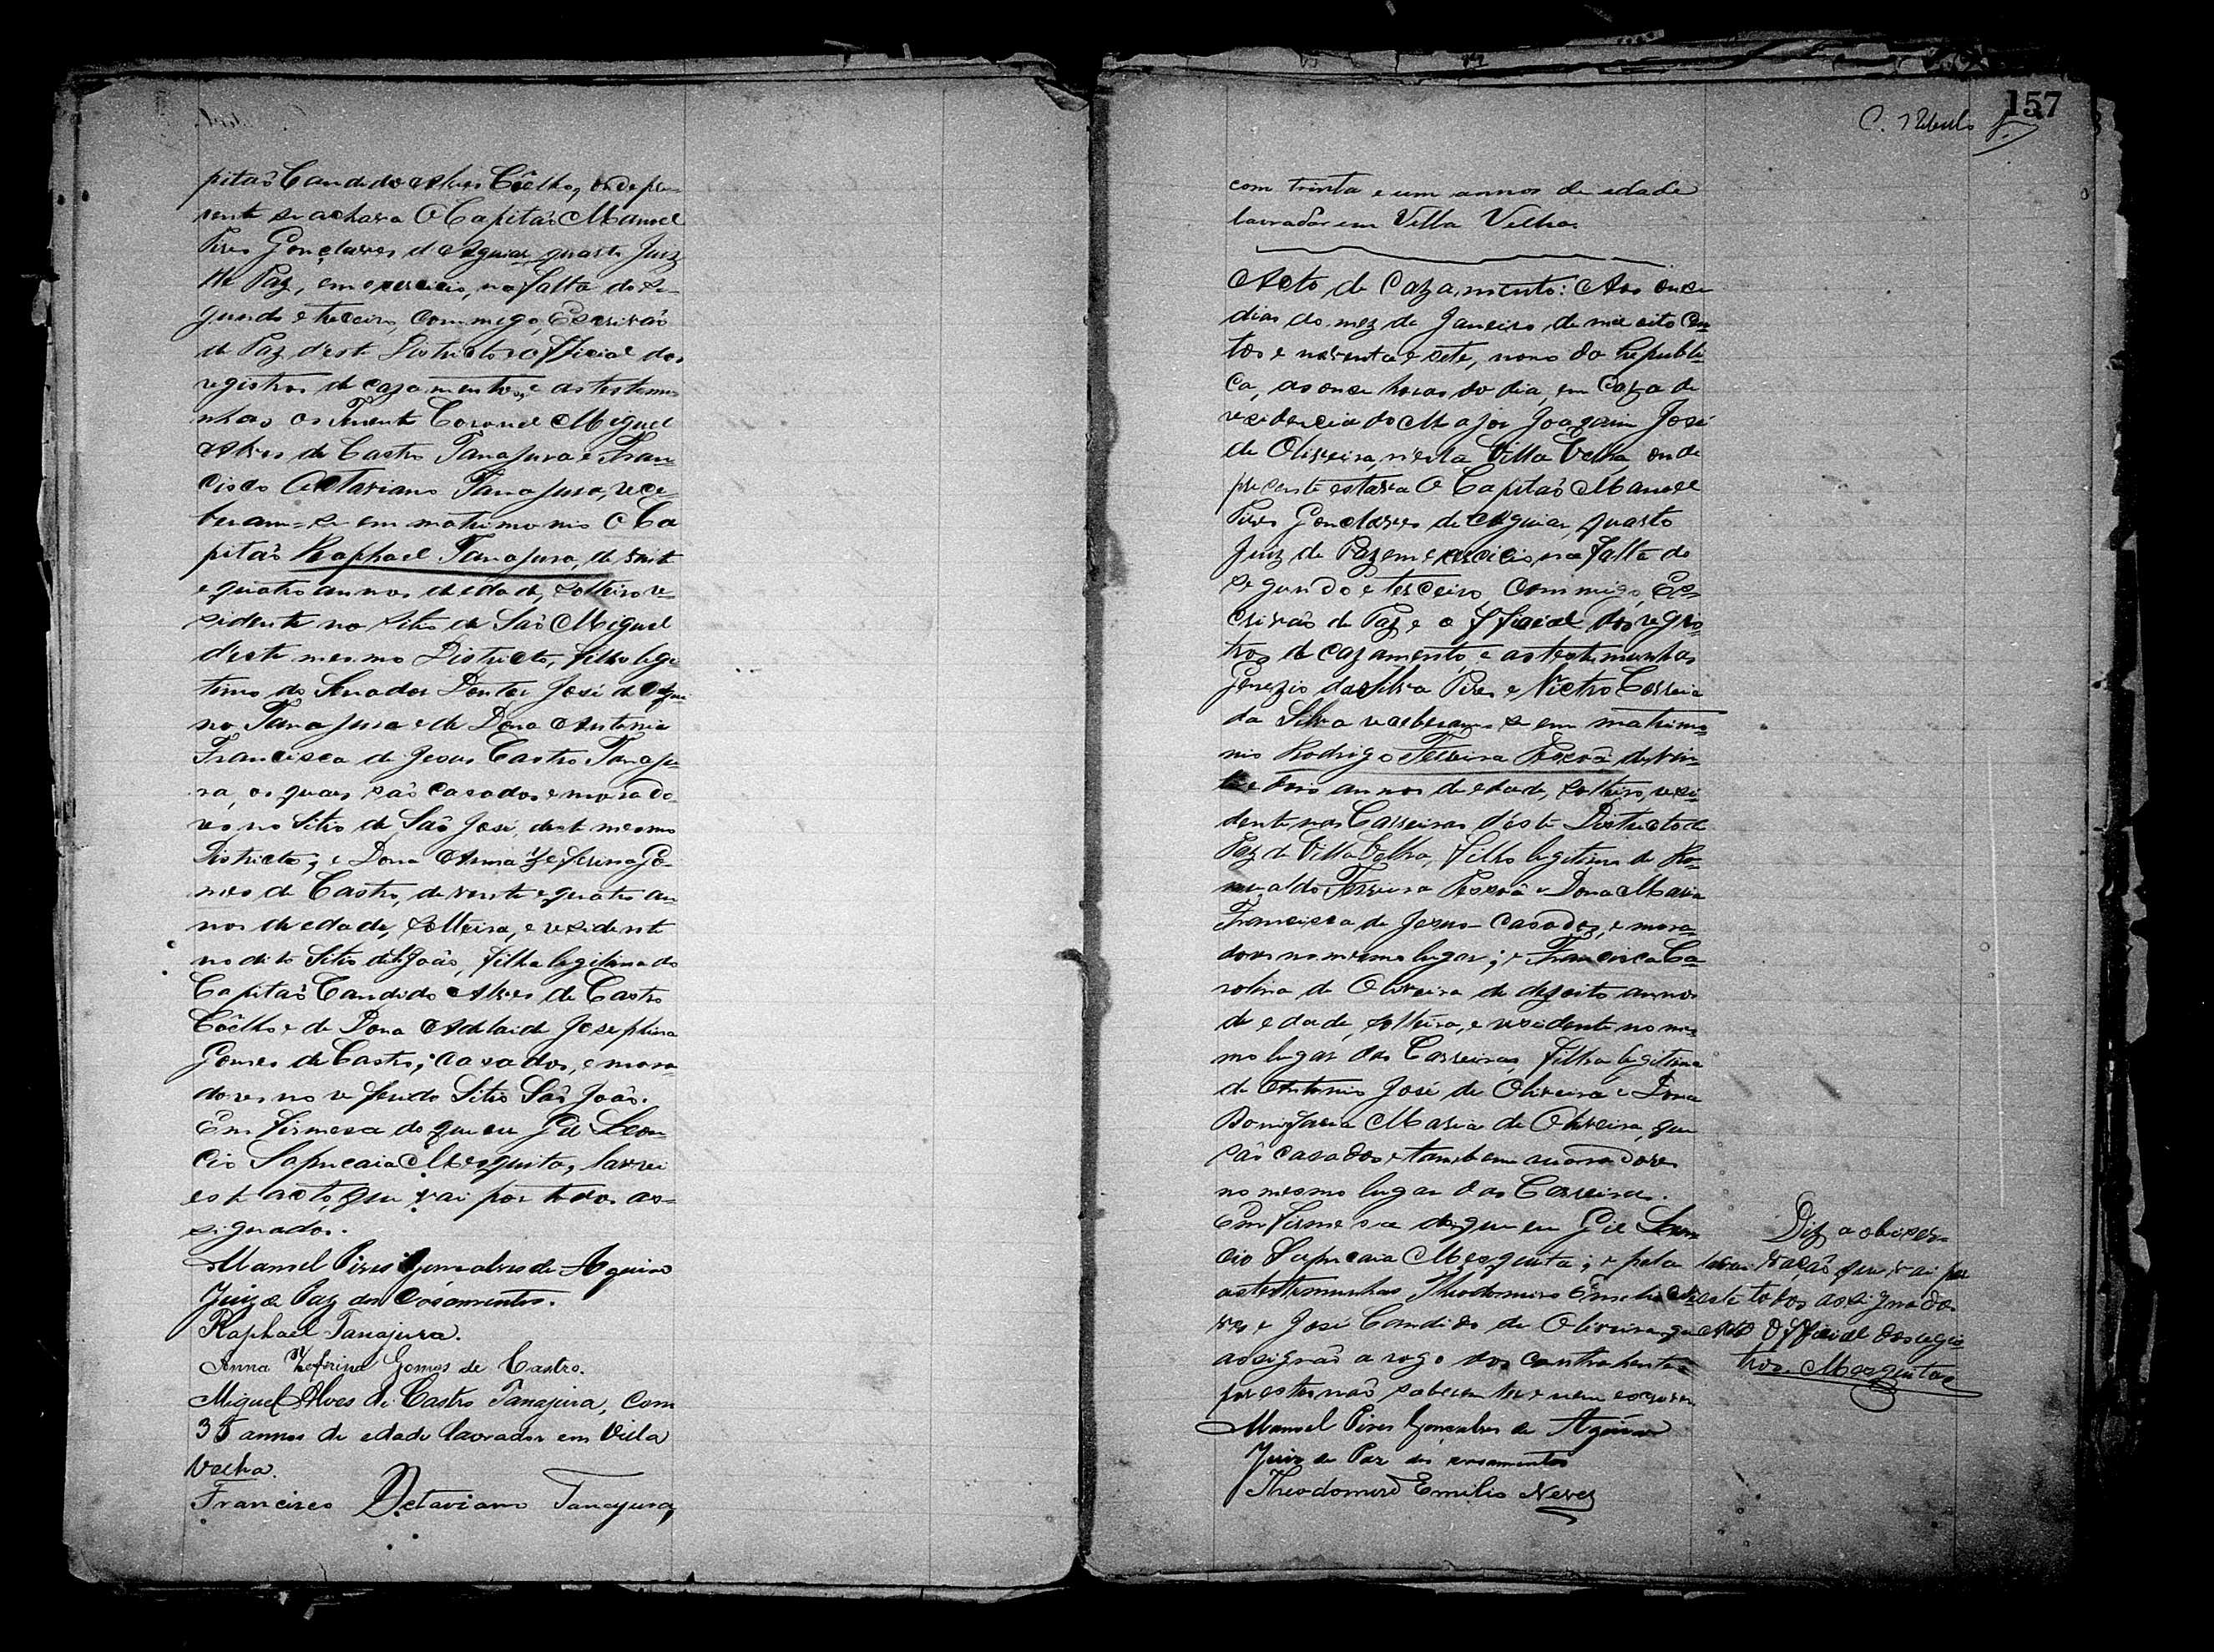 pitaõ Candido Alves Coêlho, onde pre-
sente se achava O Capitaõ Manoel
Pires Gonçalves d'Aguiar quarto Juiz
de Paz, em exercicio, na falta do se-
gundo e terceiro, commigo, Escrivaõ
de Paz d'este Districto e official dos
registros de cazamentos, e as testemu-
nhas os Tenente Coronel Miguel
Alves de Castro Tanajura e Fran-
cisco Octaviano Tanajura, rece-
beram-se em matrimonio O Ca
pitaõ Raphael Tanajura, de vinte
e quatro annos de edade, solteiro re-
sidente no sitio de Saõ Miguel
d'este mesmo Districto, filho legi
timo do Senador Doutor José de Aqui
no Tanajura e de Dona Antonia
Francisca de Jesus Castro Tanaju-
ra, os quaes saõ casados e morado-
res no Sitio de Saõ José, deste mesmo
Districto; e Dona Anna Zeferina Go-
mes de Castro, de vinte e quatro an
nos de edade, solteira, e residente
no dito Sitio de S. Joaõ, filha legitima do
Capitaõ Candido Alves de Castro
Coêlho e de Dona Adelaide Josephina
Gomes de Castro; casados, e mora-
dores no referido Sitio Saõ Joaõ.
Em firmesa do que eu Gil Leon-
cio Sapucaia Mesquita, lavrei
este acto, que vai por todos as-
signados.
Manoel Pires Gonsalves de Aguiar
Juiz de Paz dos Cásamentos.
Raphael Tanajura.
Anna Zeferina Gomes de Castro.
Miguel Alves de Castro Tanajura, com
35 annos de edade lavrador em Villa
Velha.
Francisco Octaviano Tanajura,
157
C. Rebello
com trinta e um annos de edade
lavrador em Villa Velha.
Acto de Cazamento: Aos onze
dias do mez de Janeiro de mil oito cen
tos e noventa e sete, nono da Republi-
ca, as onze horas do dia, em Caza de
residencia do Major Joaquim José
de Oliveira, n'esta Villa Velha onde
presente estava O Capitaõ Manoel
Pires Gonçalves de Aguiar, quarto
Juiz de Paz em exercicio, na falta do
segundo e terceiro, commigo, Es-
crivaõ de Paz e o official dos regis-
tros de cazamento e as testemunhas
Genezio da Silva Pires e Victro Correia
da Silva receberam-se em matrimo-
nio Rodrigo Ferreira Pessoâ de vin-
te e dois annos de edade, solteiro, resi-
dente nas Carreiras d'éste Districto de
Paz de Villa Velha, filho legitimo de Ro-
mualdo Ferreira Pessoâ e Dona Maria
Francisca de Jesus casados, e mora-
dores no mesmo lugar; e Francisca Ca-
rolina de Oliveira de desoito annos
de edade, solteira, e residente no mes-
mo lugar das Carreiras, filha legitima
de Antonio José de Oliveira e Dona
Bonifacia Maria de Oliveira, que
saõ casados e tambem moradores
no mesmo lugar das Carreiras.
Em firmesa do que eu Gil Leon
cio Sapucaia Mesquita; e pela
as testemunhas Theodomiro Emilio
e José Candido de Oliveira que
assignaõ a rogo dos contrahentes
por estes naõ saberem ler e nem escrever
Manoel Pires Gonsalves de Aguiar
Juiz de Paz dos casamentos
Theodomiro Emilio Neves
Diz a obser-
vaçaõ que vai por
todos assignados
O Official dos regis
tros. Mesquita